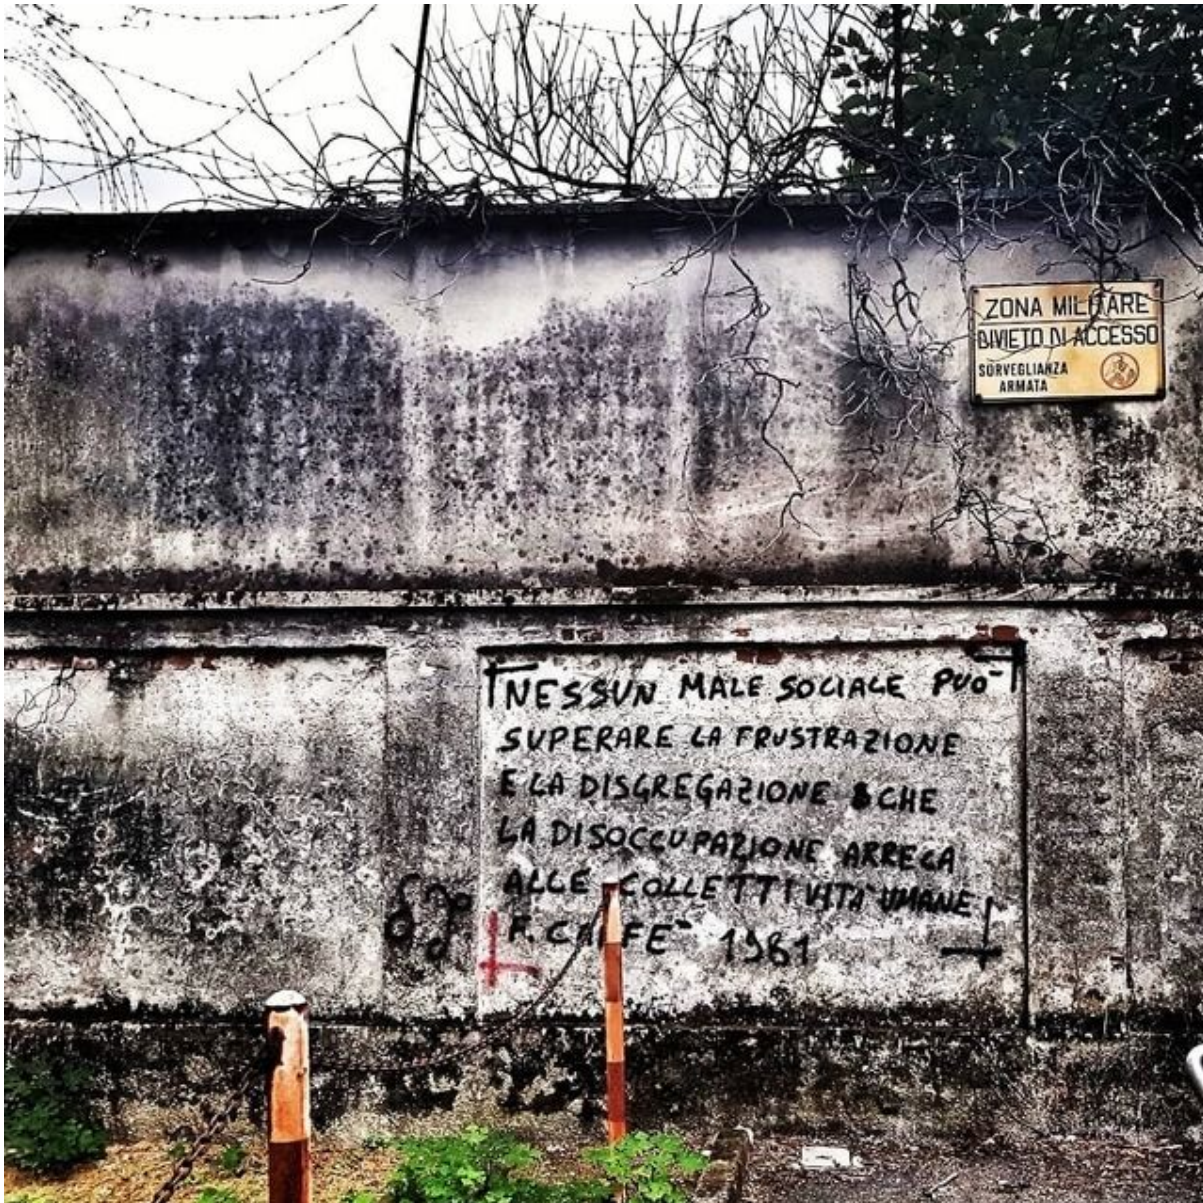 ZONA MILITARE
DIVIETO DI ACCESSO
SORVEGLIANZA
ARMATA
NESSUN MALE SOCIALE PUO'
SUPERARE LA FRUSTRAZIONE
E LA DISGREGAZIONE CHE
LA DISOCCUPAZIONE ARRECA
ALLE COLLETTIVITA' UMANE
F. CAFFE' 1981